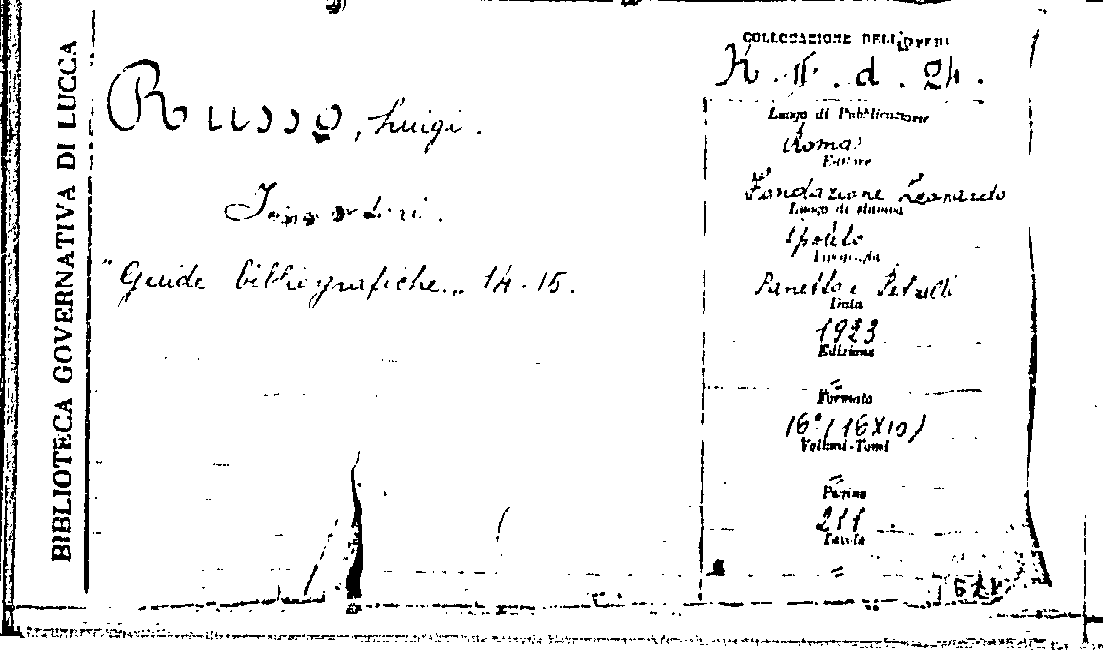 BIBLIOTECA GOVERNATIVA DI LUCCA
Russo, Luigi.
I narratori.
"Guide bibliografiche" 14-15.
COLLOCAZIONE DELL'OPERA
K. II. d. 24.
Luogo di Pubblicazione
Roma
Editore
Fondazione Leonardo
Luogo di stampa
Spoleto
Tipografia
Panetto e Petrelli
Data
1923
Edizione
=
Formato
16° (16X10)
Volumi-Tomi
=
Pagine
211
Tavole
=